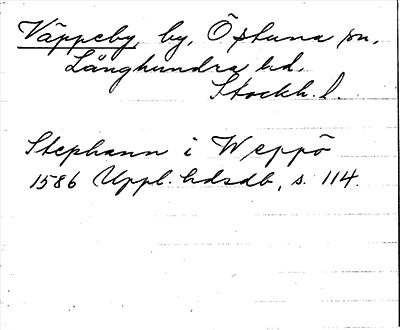 Väppeby, by, Östuna sn,
Långhundra hd.
Stockh. l.
Stephann i Weppö
1586 Uppl. hdsdb, s. 114.